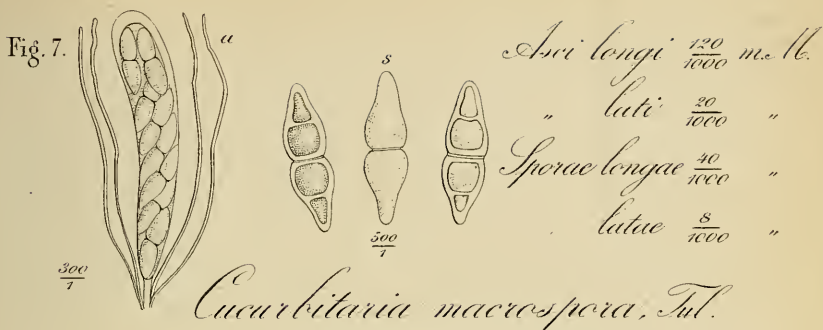 Fig. 7.
a
s
Asci longi 120/1000 m.M.
„ lati 20/1000 „
Sporae longae 40/1000 „
latae 8/1000 „
300/1
500/1
Cucurbitaria macrospora, Tul.